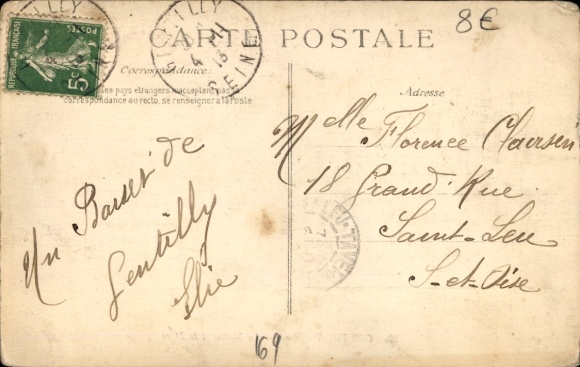 8€
CARTE POSTALE
REPUBLIQUE FRANÇAISE
5c
ILLY
SEINE
4 -11
13
Correspondance:
Adresse
les pays étrangers n'acceptent pas
correspondance au recto, se renseigner à la Poste
Un Baiser de
Gentilly
Elie
Melle Florence
18 Grand Rue
Saint-Leu
S-et-Oise
LEU-TAVER
69